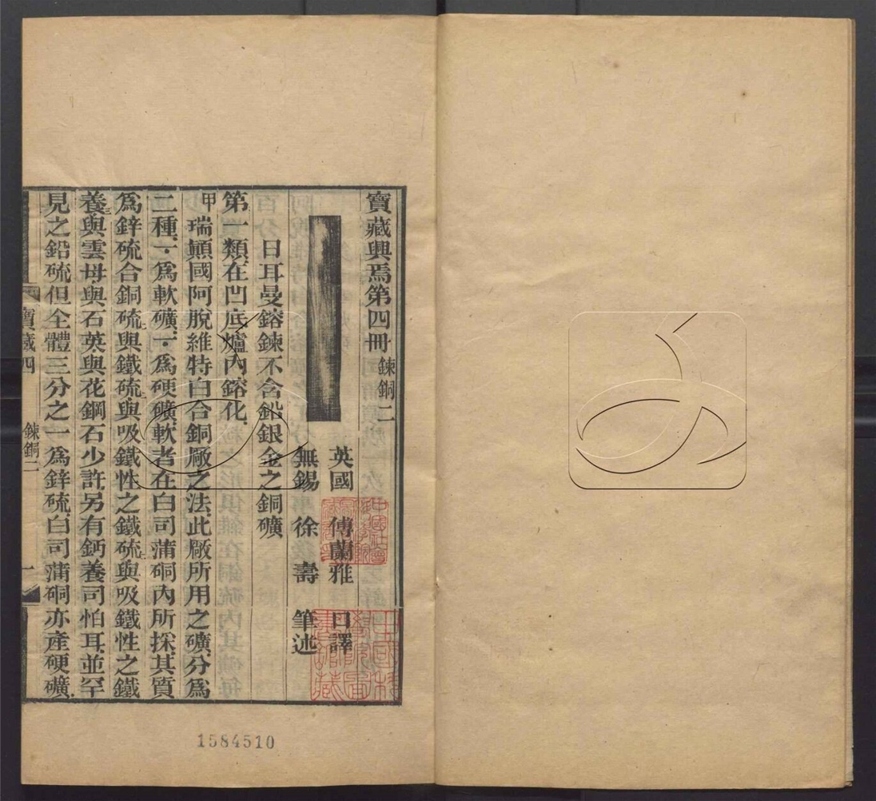 寶藏興焉第四冊 鍊銅二
英國 傅蘭雅 口譯
無錫 徐壽 筆述
日耳曼鎔鍊不含鉛銀金之銅礦
第一類在凹底爐內鎔化
甲 瑞顛國阿脫維特白合銅厰之法此厰所用之礦分爲
二種一爲軟礦一爲硬礦軟者在白司蒲硐內所採其質
爲鋅硫合銅硫與鐵硫與吸鐵性之鐵硫與吸鐵性之鐵
養與雲母與石英與花鋼石少許另有鈣養司怕耳並罕
見之鉛硫但全體三分之一爲鋅硫白司蒲硐亦產硬礦
寶藏四
鍊銅二
一
1584510